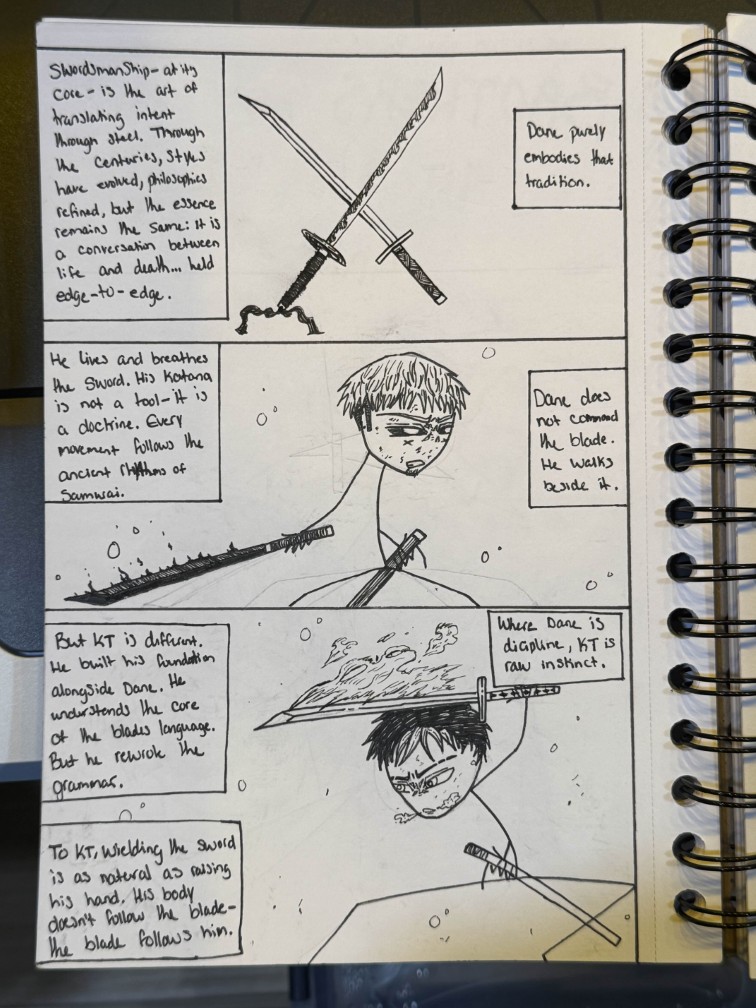 Swordsmanship- at its
core- is the art of
translating intent
through steel. Through
the centuries, styles
have evolved, philosophies
refined, but the essence
remains the same: it is
a conversation between
life and death... held
edge-to-edge.
Dane purely
embodies that
tradition.
He lives and breathes
the sword. His Katana
is not a tool- it is
a doctrine. Every
movement follows the
ancient rhythms of
Samurai.
Dane does
not command
the blade.
He walks
beside it.
Where Dane is
disipline, KT is
raw instinct.
But KT is different.
He built his foundation
alongside Dane. He
understands the core
of the blades language.
But he rewrote the
grammar.
To KT, wielding the sword
is as natural as raising
his hand. His body
doesn't follow the blade-
the blade follows him.